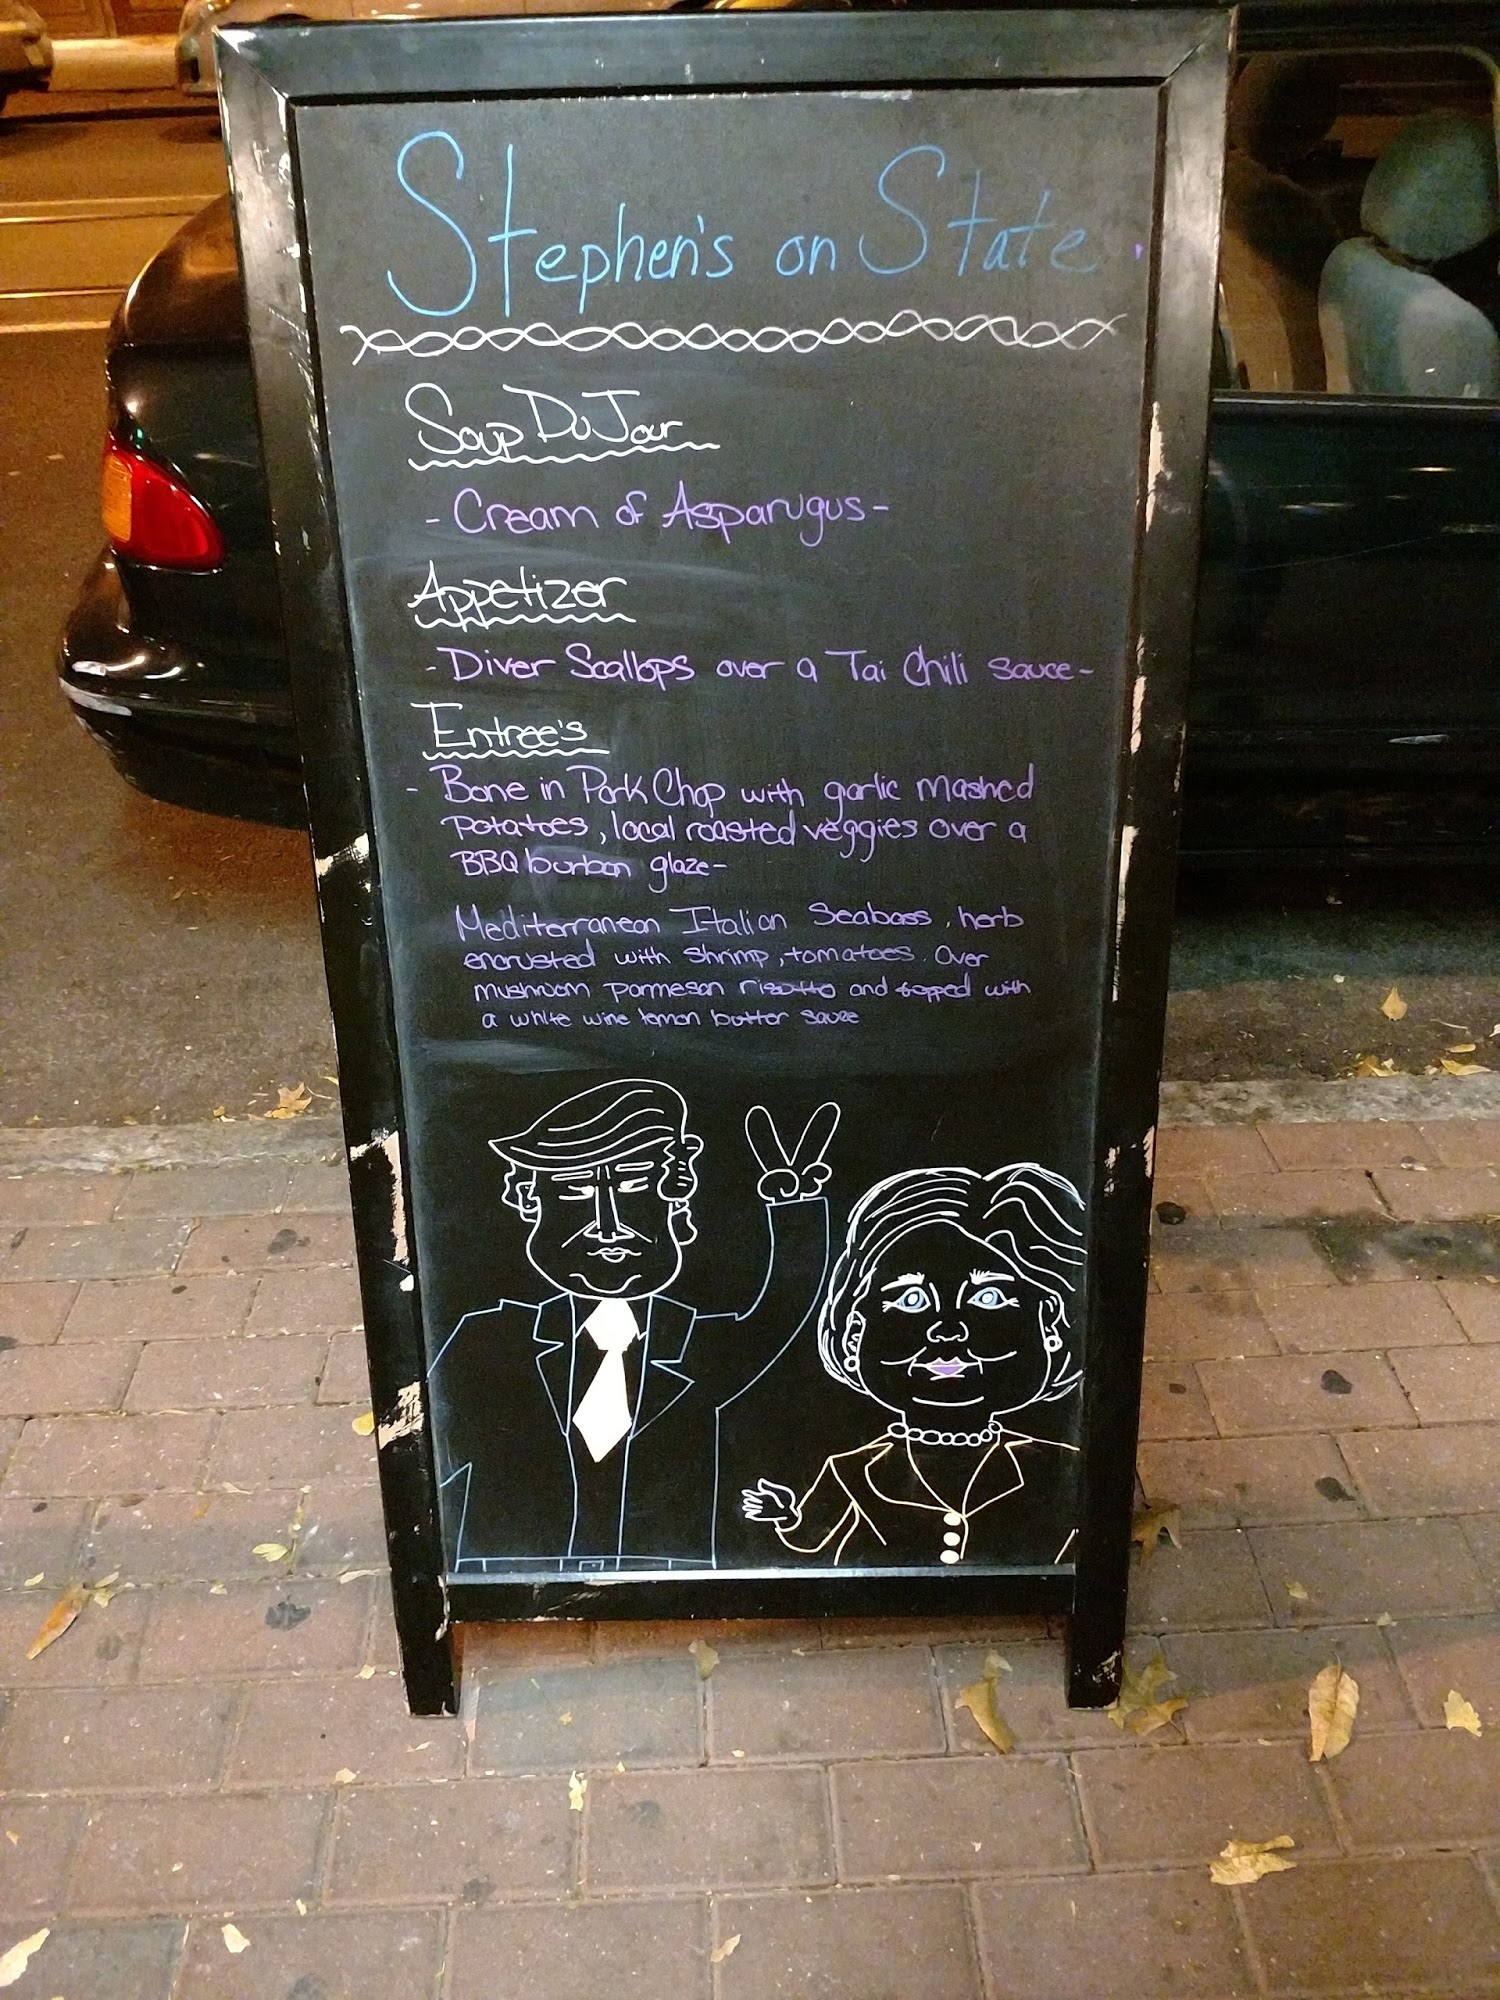 Stephen's on State
Soup Du Jour
- Cream of Asparugus -
Appetizer
- Diver Scallops over a Tai Chili sauce -
Entree's
- Bone in Pork Chop with garlic mashed
potatoes, local roasted veggies over a
BBQ bourbon glaze -
Mediterranean Italian Seabass, herb
encrusted with shrimp, tomatoes. Over
mushroom parmesan risotto and topped with
a white wine lemon butter sauce